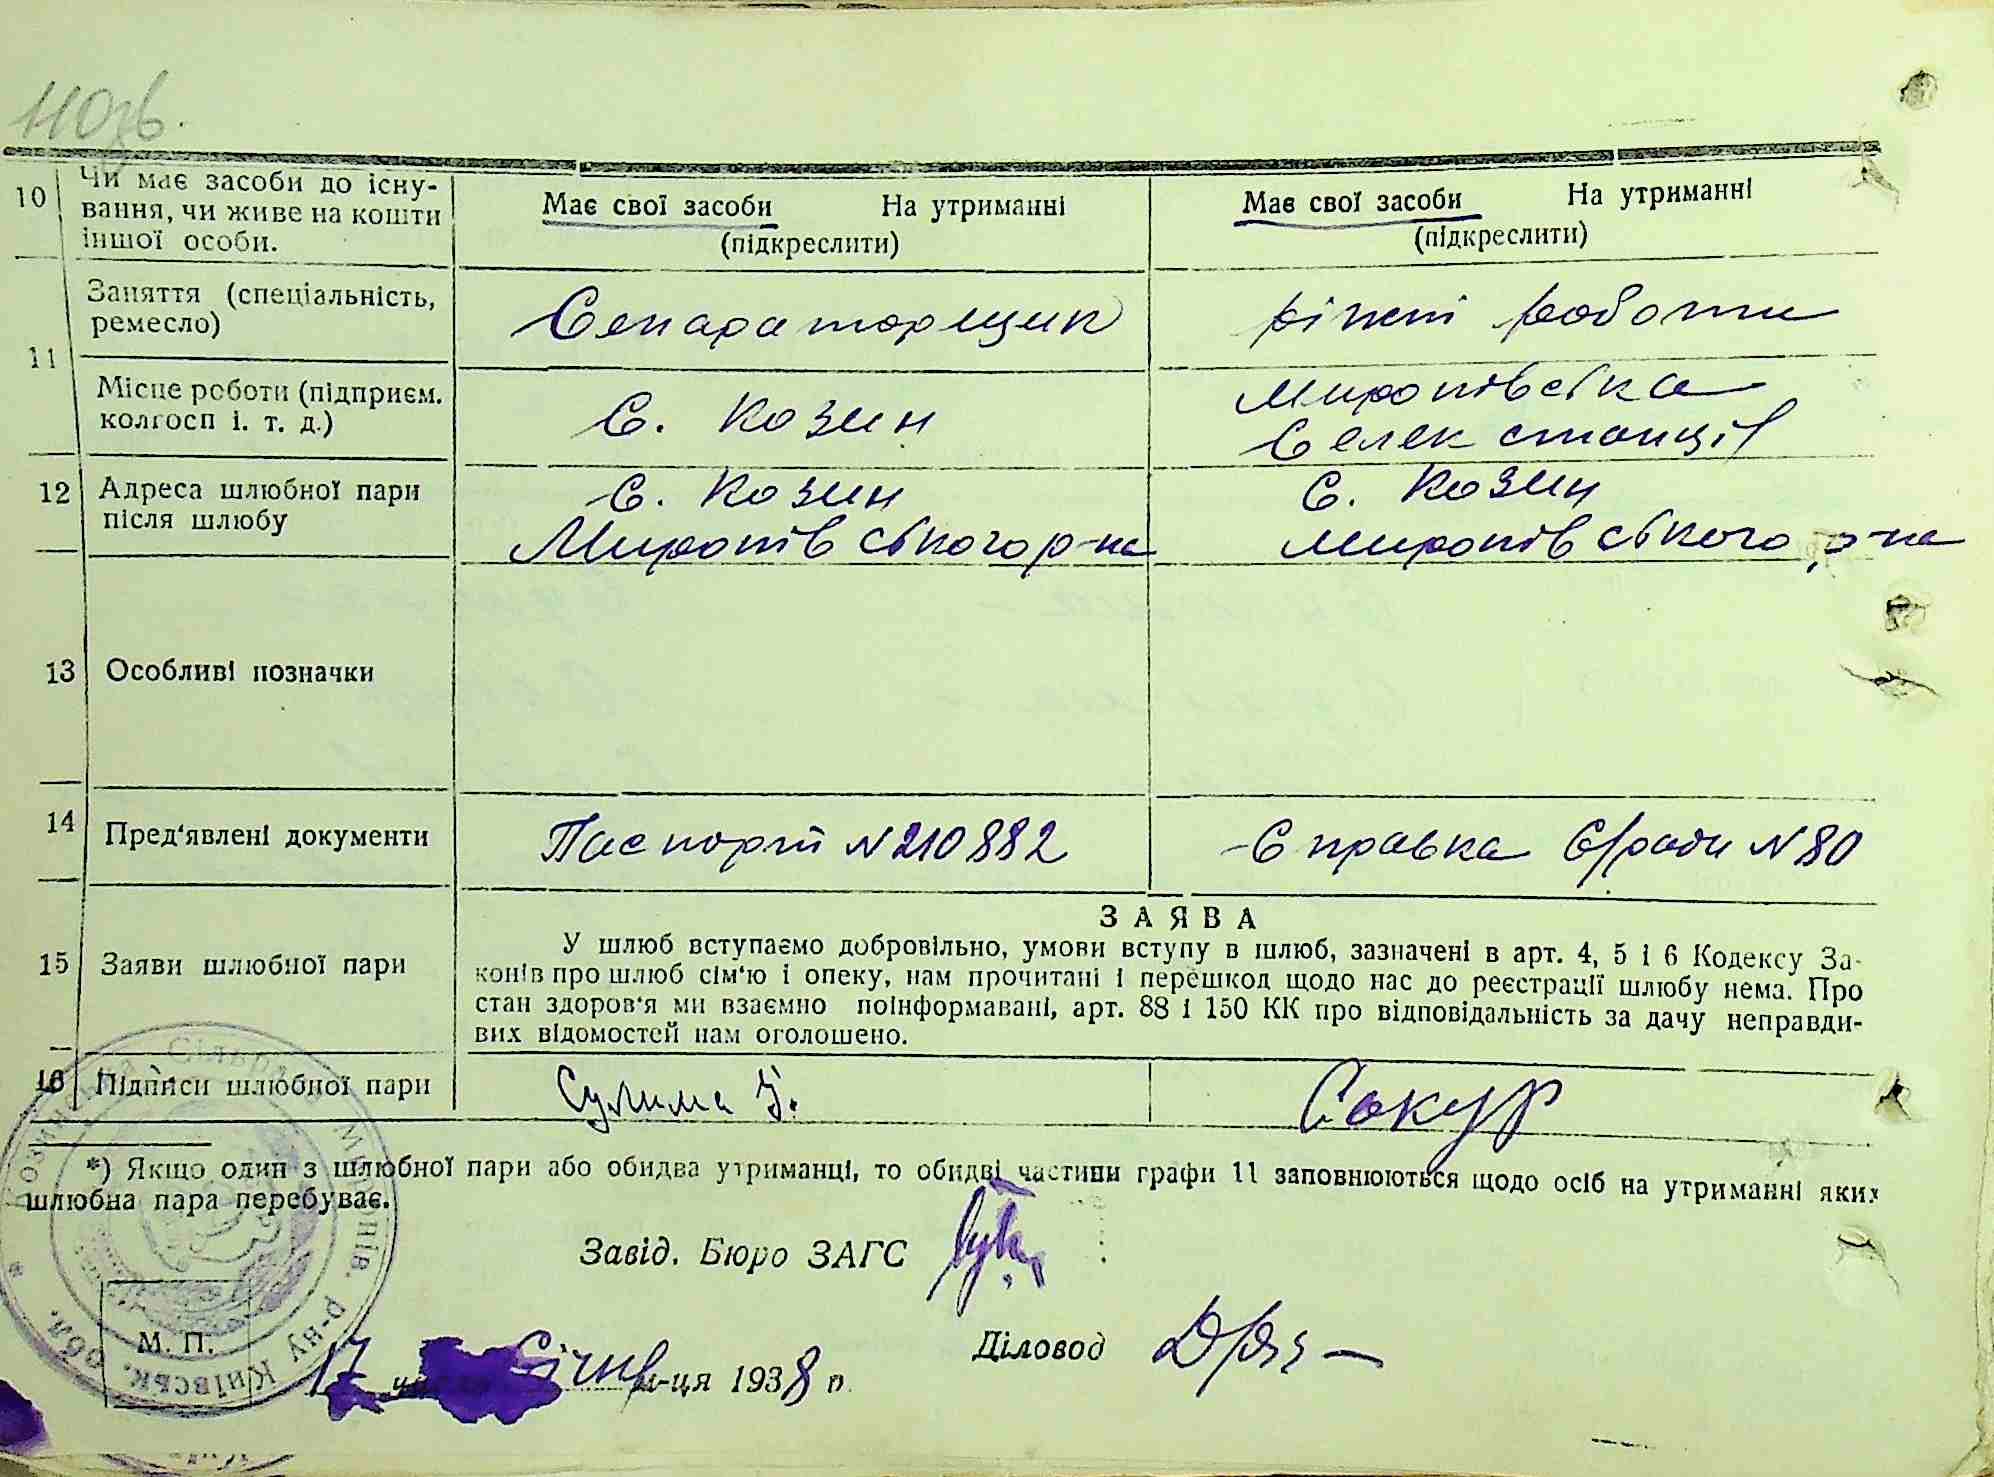 110зв.
10 Чи має засоби до існу-
вання, чи живе на кошти
іншої особи.
Має свої засоби На утриманні
(підкреслити)
Має свої засоби На утриманні
(підкреслити)
11 Заняття (спеціальність,
ремесло)
Сепараторщик
ріжні роботи
Місце роботи (підприєм.
колгосп і. т. д.)
С. Козин
Миронівська
Селекстанція
12 Адреса шлюбної пари
після шлюбу
С. Козин
Миронівського р-на
С. Козин
Миронівського р-на
13 Особливі позначки
14 Пред'явлені документи
Паспорт №210882
Справка С/ради №80
15 Заяви шлюбної пари
ЗАЯВА
У шлюб вступаємо добровільно, умови вступу в шлюб, зазначені в арт. 4, 5 і 6 Кодексу За-
конів про шлюб сім'ю і опеку, нам прочитані і перешкод щодо нас до реєстрації шлюбу нема. Про
стан здоров'я ми взаємно поінформавані, арт. 88 і 150 КК про відповідальність за дачу неправди-
вих відомостей нам оголошено.
16 Підписи шлюбної пари
Сулима
Сокур
*) Якщо один з шлюбної пари або обидва утриманці, то обидві частини графи 11 заповнюються щодо осіб на утриманні яких
шлюбна пара перебуває.
Завід. Бюро ЗАГС
Діловод
М. П.
17 Січня м-ця 1938 р.
Сільрада Миронів. р-ну Київськ. обл.